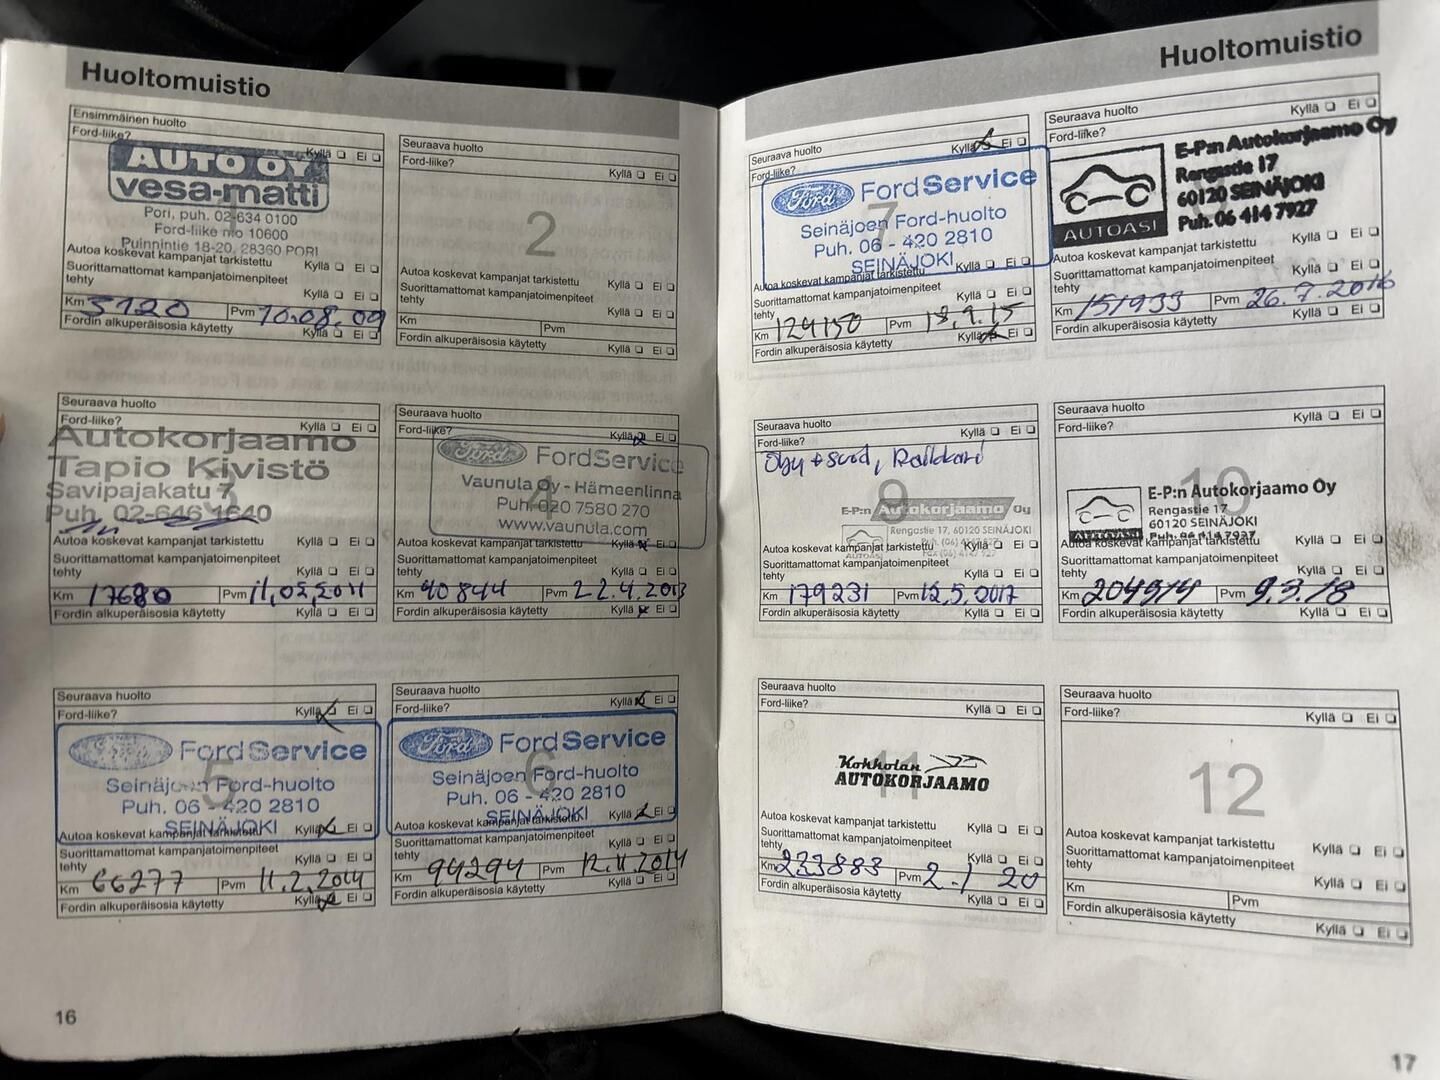 Huoltomuistio
Ensimmäinen huolto
Ford-liike?
Kyllä Ei
AUTO OY
vesa-matti
1
Pori, puh. 02-634 0100
Ford-liike n:o 10600
Puinnintie 18-20, 28360 PORI
Autoa koskevat kampanjat tarkistettu
Kyllä Ei
Suorittamattomat kampanjatoimenpiteet
tehty
Kyllä Ei
Km 3120 Pvm 10.08.09
Fordin alkuperäisosia käytetty
Kyllä Ei
Seuraava huolto
Ford-liike?
Kyllä Ei
2
Autoa koskevat kampanjat tarkistettu
Kyllä Ei
Suorittamattomat kampanjatoimenpiteet
tehty
Kyllä Ei
Km Pvm
Fordin alkuperäisosia käytetty
Kyllä Ei
Seuraava huolto
Ford-liike?
Kyllä Ei
Autokorjaamo
Tapio Kivistö
3
Savipajakatu 7
Puh. 02-646 1640
Autoa koskevat kampanjat tarkistettu
Kyllä Ei
Suorittamattomat kampanjatoimenpiteet
tehty
Kyllä Ei
Km 17680 Pvm 11,05,2011
Fordin alkuperäisosia käytetty
Kyllä Ei
Seuraava huolto
Ford-liike?
Kyllä Ei
Ford FordService
4
Vaunula Oy - Hämeenlinna
Puh. 020 7580 270
www.vaunula.com
Autoa koskevat kampanjat tarkistettu
Kyllä Ei
Suorittamattomat kampanjatoimenpiteet
tehty
Kyllä Ei
Km 40844 Pvm 22.4.2013
Fordin alkuperäisosia käytetty
Kyllä Ei
Seuraava huolto
Ford-liike?
Kyllä Ei
Ford FordService
5
Seinäjoen Ford-huolto
Puh. 06 - 420 2810
SEINÄJOKI
Autoa koskevat kampanjat tarkistettu
Kyllä Ei
Suorittamattomat kampanjatoimenpiteet
tehty
Kyllä Ei
Km 66277 Pvm 11.2.2014
Fordin alkuperäisosia käytetty
Kyllä Ei
Seuraava huolto
Ford-liike?
Kyllä Ei
Ford FordService
6
Seinäjoen Ford-huolto
Puh. 06 - 420 2810
SEINÄJOKI
Autoa koskevat kampanjat tarkistettu
Kyllä Ei
Suorittamattomat kampanjatoimenpiteet
tehty
Kyllä Ei
Km 94294 Pvm 12.11.2014
Fordin alkuperäisosia käytetty
Kyllä Ei
16
Huoltomuistio
Seuraava huolto
Ford-liike?
Kyllä Ei
Ford FordService
7
Seinäjoen Ford-huolto
Puh. 06 - 420 2810
SEINÄJOKI
Autoa koskevat kampanjat tarkistettu
Kyllä Ei
Suorittamattomat kampanjatoimenpiteet
tehty
Kyllä Ei
Km 124150 Pvm 18.9.15
Fordin alkuperäisosia käytetty
Kyllä Ei
Seuraava huolto
Ford-liike?
Kyllä Ei
E-P:n Autokorjaamo Oy
Rengastie 17
60120 SEINÄJOKI
Puh. 06 414 7927
AUTOASI
Autoa koskevat kampanjat tarkistettu
Kyllä Ei
Suorittamattomat kampanjatoimenpiteet
tehty
Kyllä Ei
Km 151933 Pvm 26.7.2016
Fordin alkuperäisosia käytetty
Kyllä Ei
Seuraava huolto
Ford-liike?
Kyllä Ei
9
E-P:n Autokorjaamo Oy
Rengastie 17, 60120 SEINÄJOKI
AUTOASI
Autoa koskevat kampanjat tarkistettu
Kyllä Ei
Suorittamattomat kampanjatoimenpiteet
tehty
Kyllä Ei
Km 179231 Pvm 12.5.2017
Fordin alkuperäisosia käytetty
Kyllä Ei
Seuraava huolto
Ford-liike?
Kyllä Ei
10
E-P:n Autokorjaamo Oy
Rengastie 17
60120 SEINÄJOKI
Autoa koskevat kampanjat tarkistettu
Kyllä Ei
Suorittamattomat kampanjatoimenpiteet
tehty
Kyllä Ei
Km Pvm 9.3.18
Fordin alkuperäisosia käytetty
Kyllä Ei
Seuraava huolto
Ford-liike?
Kyllä Ei
11
Kokkolan
AUTOKORJAAMO
Autoa koskevat kampanjat tarkistettu
Kyllä Ei
Suorittamattomat kampanjatoimenpiteet
tehty
Kyllä Ei
Km 233883 Pvm 2.1 20
Fordin alkuperäisosia käytetty
Kyllä Ei
Seuraava huolto
Ford-liike?
Kyllä Ei
12
Autoa koskevat kampanjat tarkistettu
Kyllä Ei
Suorittamattomat kampanjatoimenpiteet
tehty
Kyllä Ei
Km Pvm
Fordin alkuperäisosia käytetty
Kyllä Ei
17